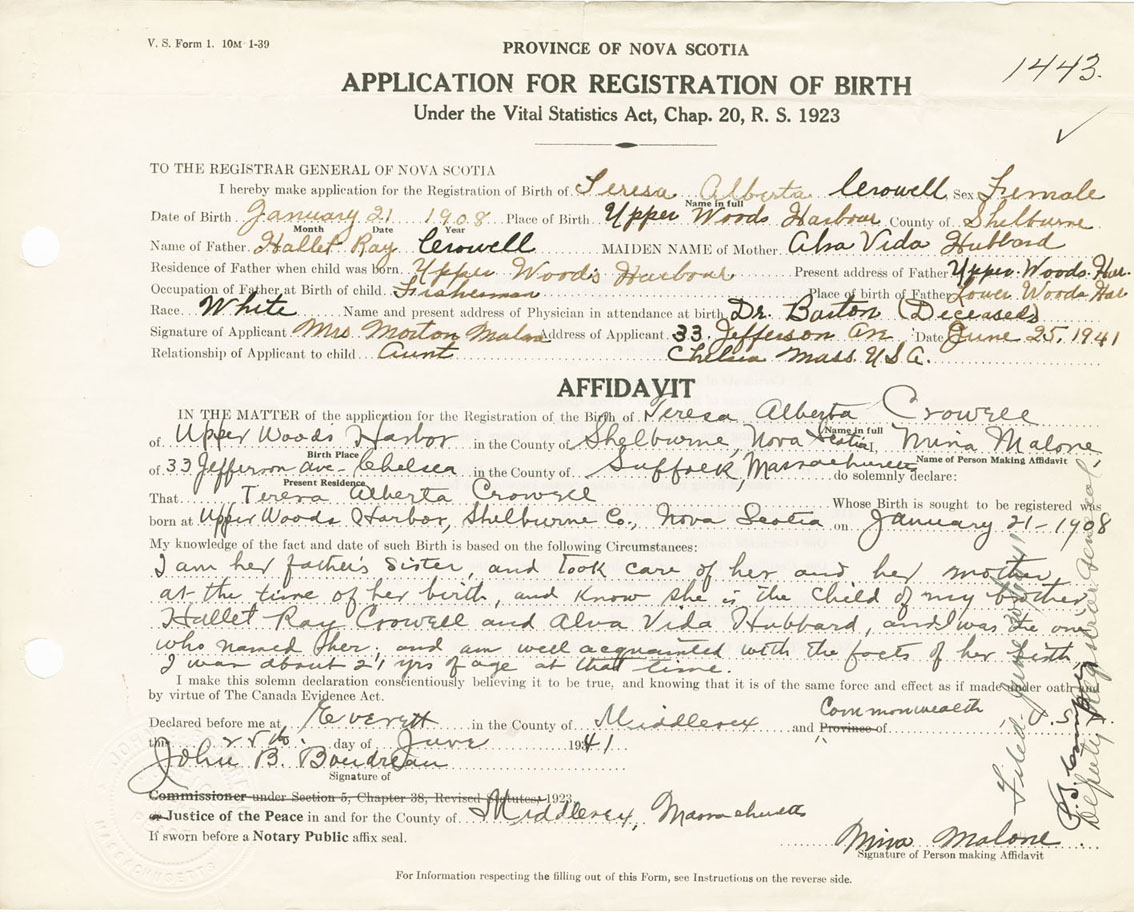 V. S. Form 1. 10M 1-39
PROVINCE OF NOVA SCOTIA
1443.
APPLICATION FOR REGISTRATION OF BIRTH
Under the Vital Statistics Act, Chap. 20, R. S. 1923
TO THE REGISTRAR GENERAL OF NOVA SCOTIA
I hereby make application for the Registration of Birth of Teresa Alberta Crowell Sex Female
Name in full
Date of Birth January 21 1908 Place of Birth Upper Woods Harbour County of Shelburne
Month Date Year
Name of Father Hallet Ray Crowell MAIDEN NAME of Mother Alva Vida Hubbard
Residence of Father when child was born Upper Wood's Harbour Present address of Father Upper Woods Har.
Occupation of Father at Birth of child Fisherman Place of birth of Father Lower Woods Har
Race White Name and present address of Physician in attendance at birth Dr. Barton (Deceased)
Signature of Applicant Mrs Morton Malone Address of Applicant 33 Jefferson Ave Date June 25, 1941
Relationship of Applicant to child Aunt Chelsea Mass. U.S.A.
AFFIDAVIT
IN THE MATTER of the application for the Registration of the Birth of Teresa Alberta Crowell
Name in full
of Upper Woods Harbor in the County of Shelburne, Nova Scotia I, Mina Malone
Birth Place Name of Person Making Affidavit
of 33 Jefferson Ave- Chelsea in the County of Suffolk, Massachusetts do solemnly declare:
Present Residence
That Teresa Alberta Crowell Whose Birth is sought to be registered was
born at Upper Woods Harbor, Shelburne Co., Nova Scotia on January 21-1908
My knowledge of the fact and date of such Birth is based on the following Circumstances:
I am her father's sister, and took care of her and her mother
at the time of her birth, and know she is the child of my brother
Hallet Ray Crowell and Alva Vida Hubbard, and I was the one
who named her, and am well acquainted with the facts of her birth,
I was about 21 yrs of age at that time.
I make this solemn declaration conscientiously believing it to be true, and knowing that it is of the same force and effect as if made under oath and
by virtue of The Canada Evidence Act.
Declared before me at Everett in the County of Middlesex and Province of Commonwealth
this 25th day of June 1941
John B. Boudreau
Signature of
Commissioner under Section 5, Chapter 38, Revised Statutes, 1923
or Justice of the Peace in and for the County of Middlesex, Massachusetts
If sworn before a Notary Public affix seal.
Mina Malone
Signature of Person making Affidavit
For Information respecting the filling out of this Form, see Instructions on the reverse side.
Filed June
Deputy Registrar General